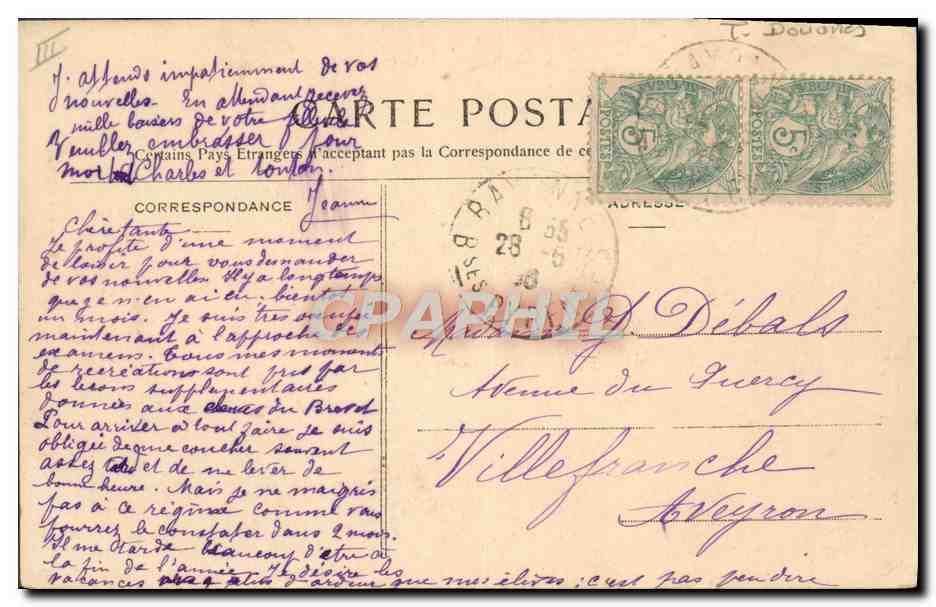 III
T. Douanes
CARTE POSTA
Certains Pays Etrangers n'acceptant pas la Correspondance de ce
CORRESPONDANCE
ADRESSE
POSTES 5
POSTES 5
BAYONNE
BSES
28
CPARAMA
Chère tante
Je profite d'une moment
de loisir pour vous demander
de vos nouvelles. Il y a longtemps
que je n'en ai eu, bientôt
un mois. Je suis très occupée
maintenant à l'approche des
examens. Tous mes moments
de recréations sont pris par
les leçons supplémentaires
données aux du Brevet
Pour arriver à tout faire je suis
obligée de me coucher souvent
assez et de me lever de
bonne heure. Mais je ne maigris
pas à ce régime comme vous
pourrez le constater dans 2 mois.
Il me tarde beaucoup d'être à
la fin de l'année. Je désire les
vacances plus d'ardeur que mes élèves ; c'est pas peu dire
J'attends impatiemment de vos
nouvelles. En attendant recevez
mille baisers de votre
Veuillez embrasser pour
moi Charles et tonton.
Jeanne
Madame J. Débals
Avenue du Quercy
Villefranche
Aveyron
CPARHIL